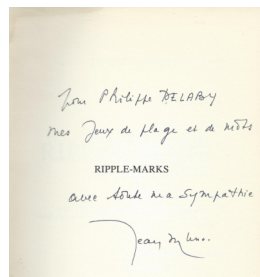 Pour Philippe DELABY
mes Jeux de plage et de mots
RIPPLE-MARKS
avec toute ma Sympathie
Jean